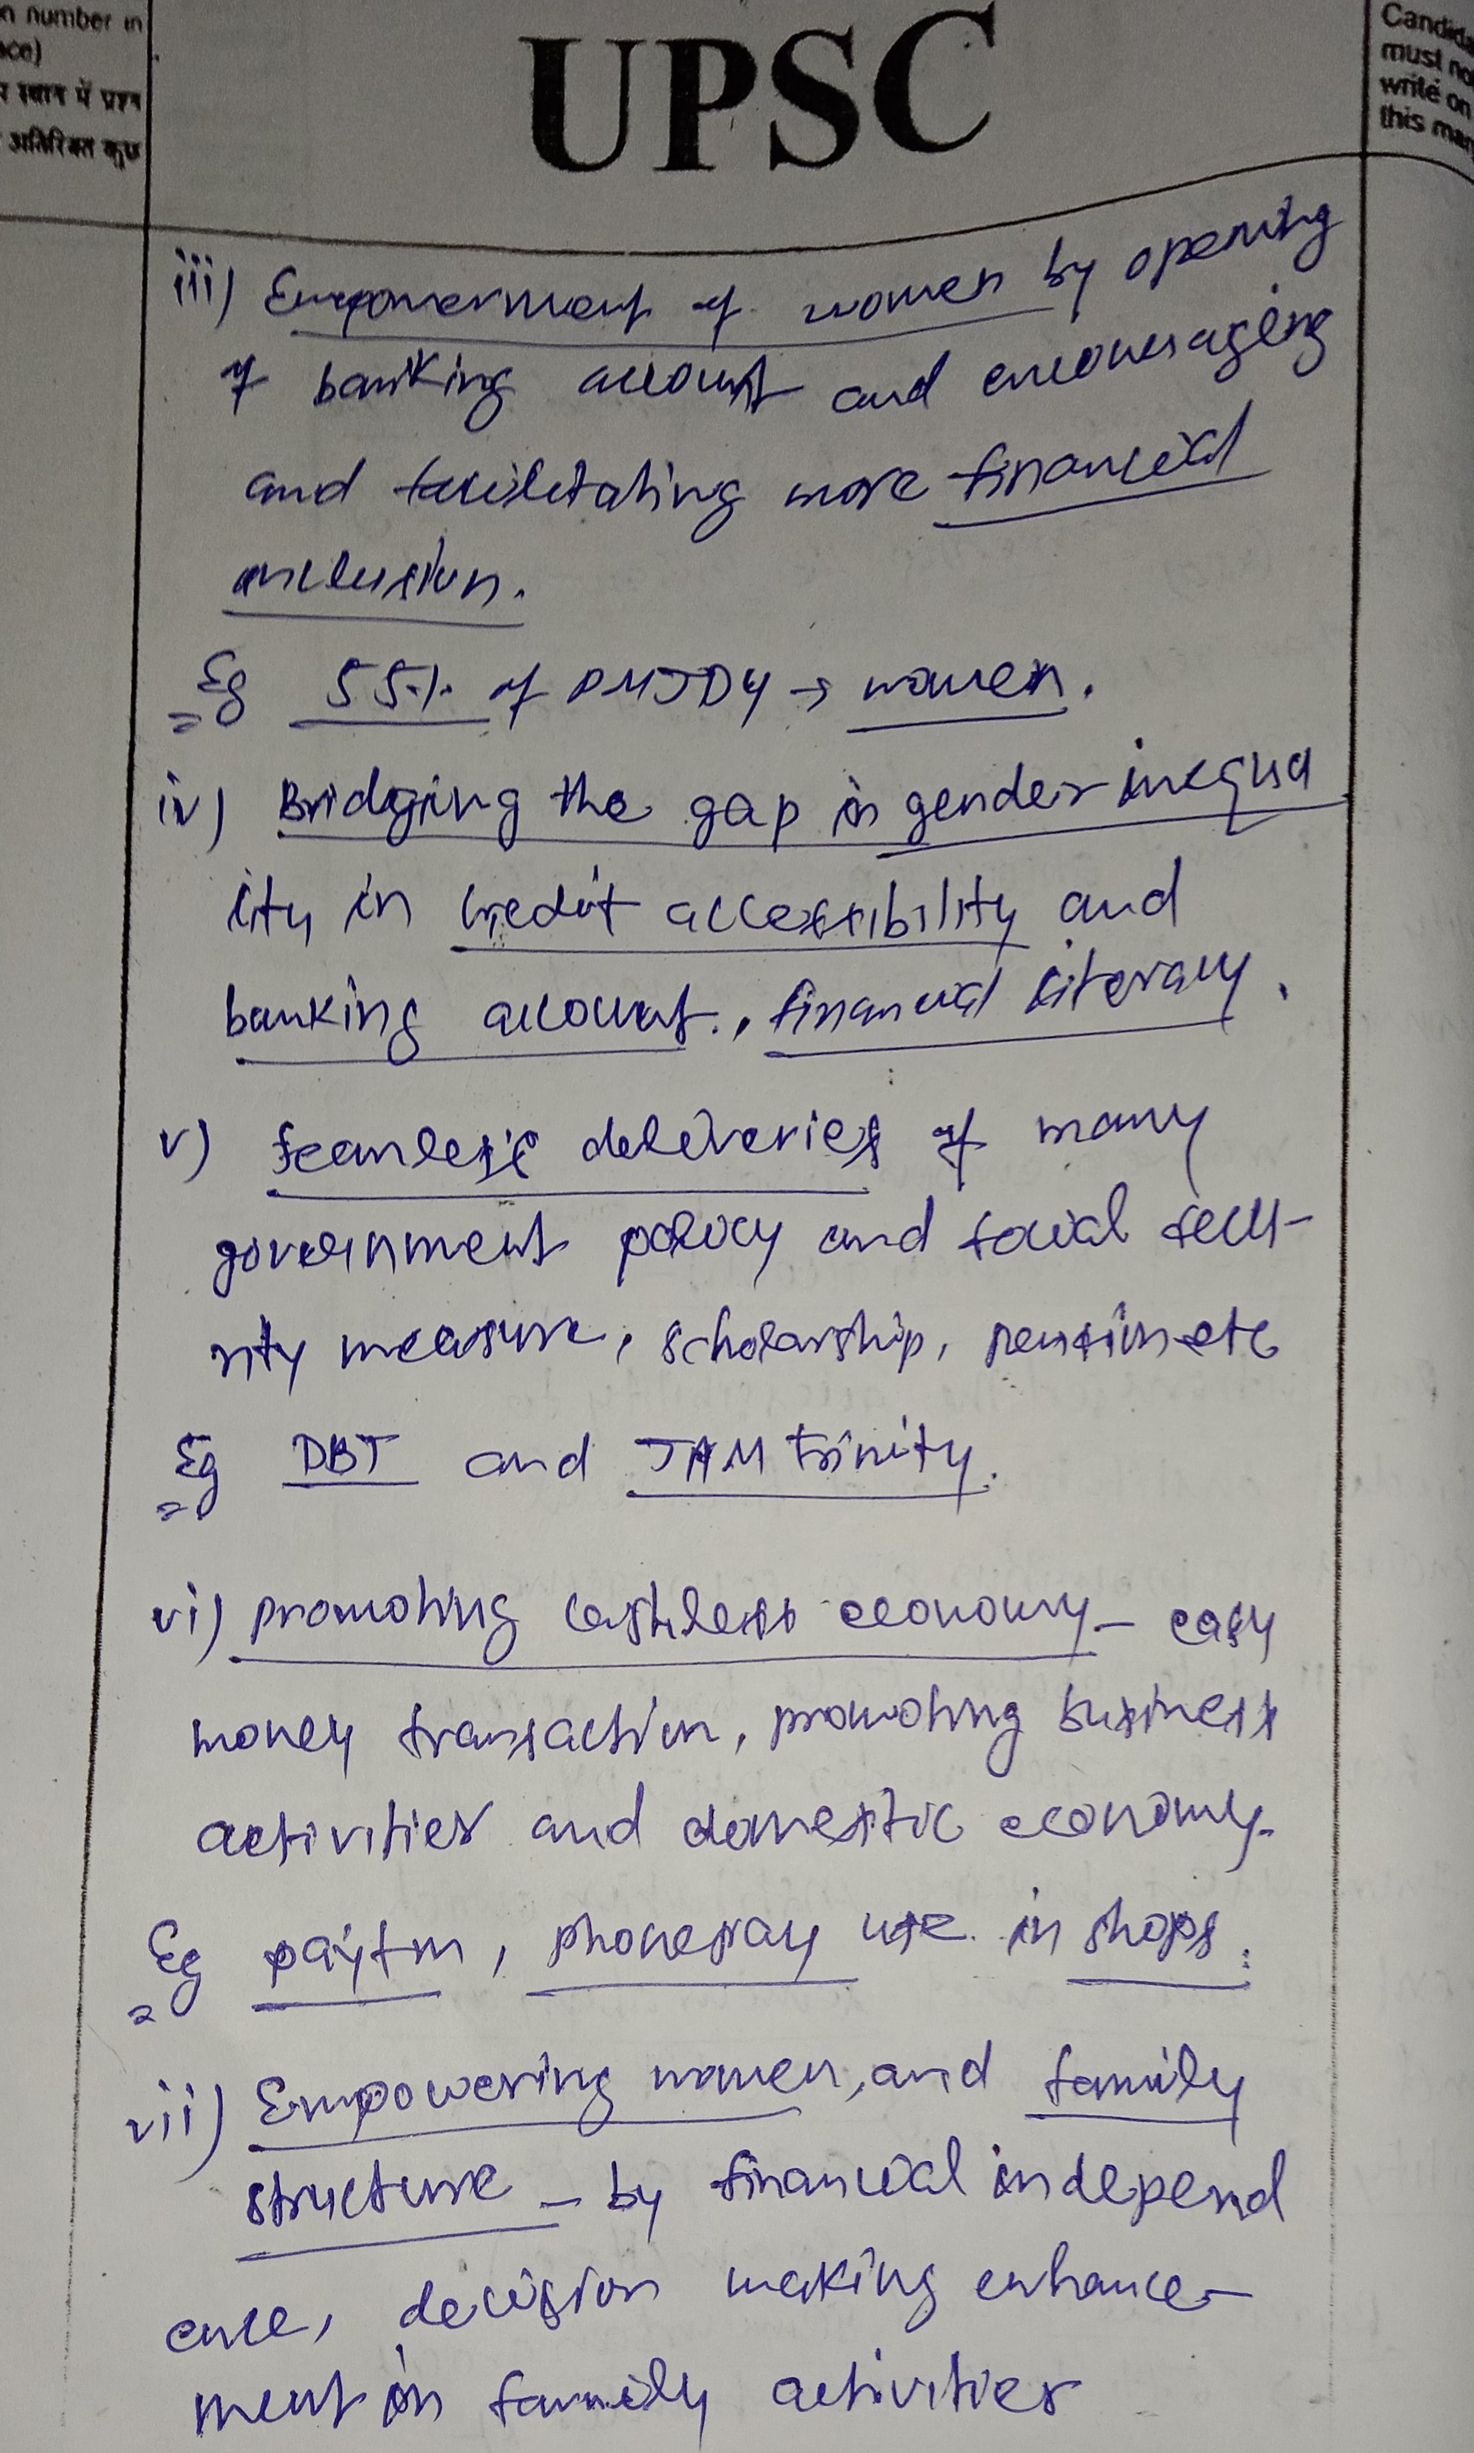 n number in
ace)
र स्थान में प्रश्न
अतिरिक्त कुछ
UPSC
Candida
must no
write on
this mar
iii) Empowerment of women by opening
of banking account and encouraging
and facilitating more financial
inclusion.
Eg 55% of PMJDY → women.
iv) Bridging the gap in gender inequa
lity in credit accessibility and
banking account, financial literacy.
v) seamless deliveries of many
government policy and social secu-
rity measure, scholarship, pension etc
Eg DBT and JAM trinity.
vi) promoting cashless economy - easy
money transaction, promoting business
activities and domestic economy.
Eg paytm, phonepay use in shops.
vii) Empowering women, and family
structure - by financial independ
ence, decision making enhance-
ment in family activities